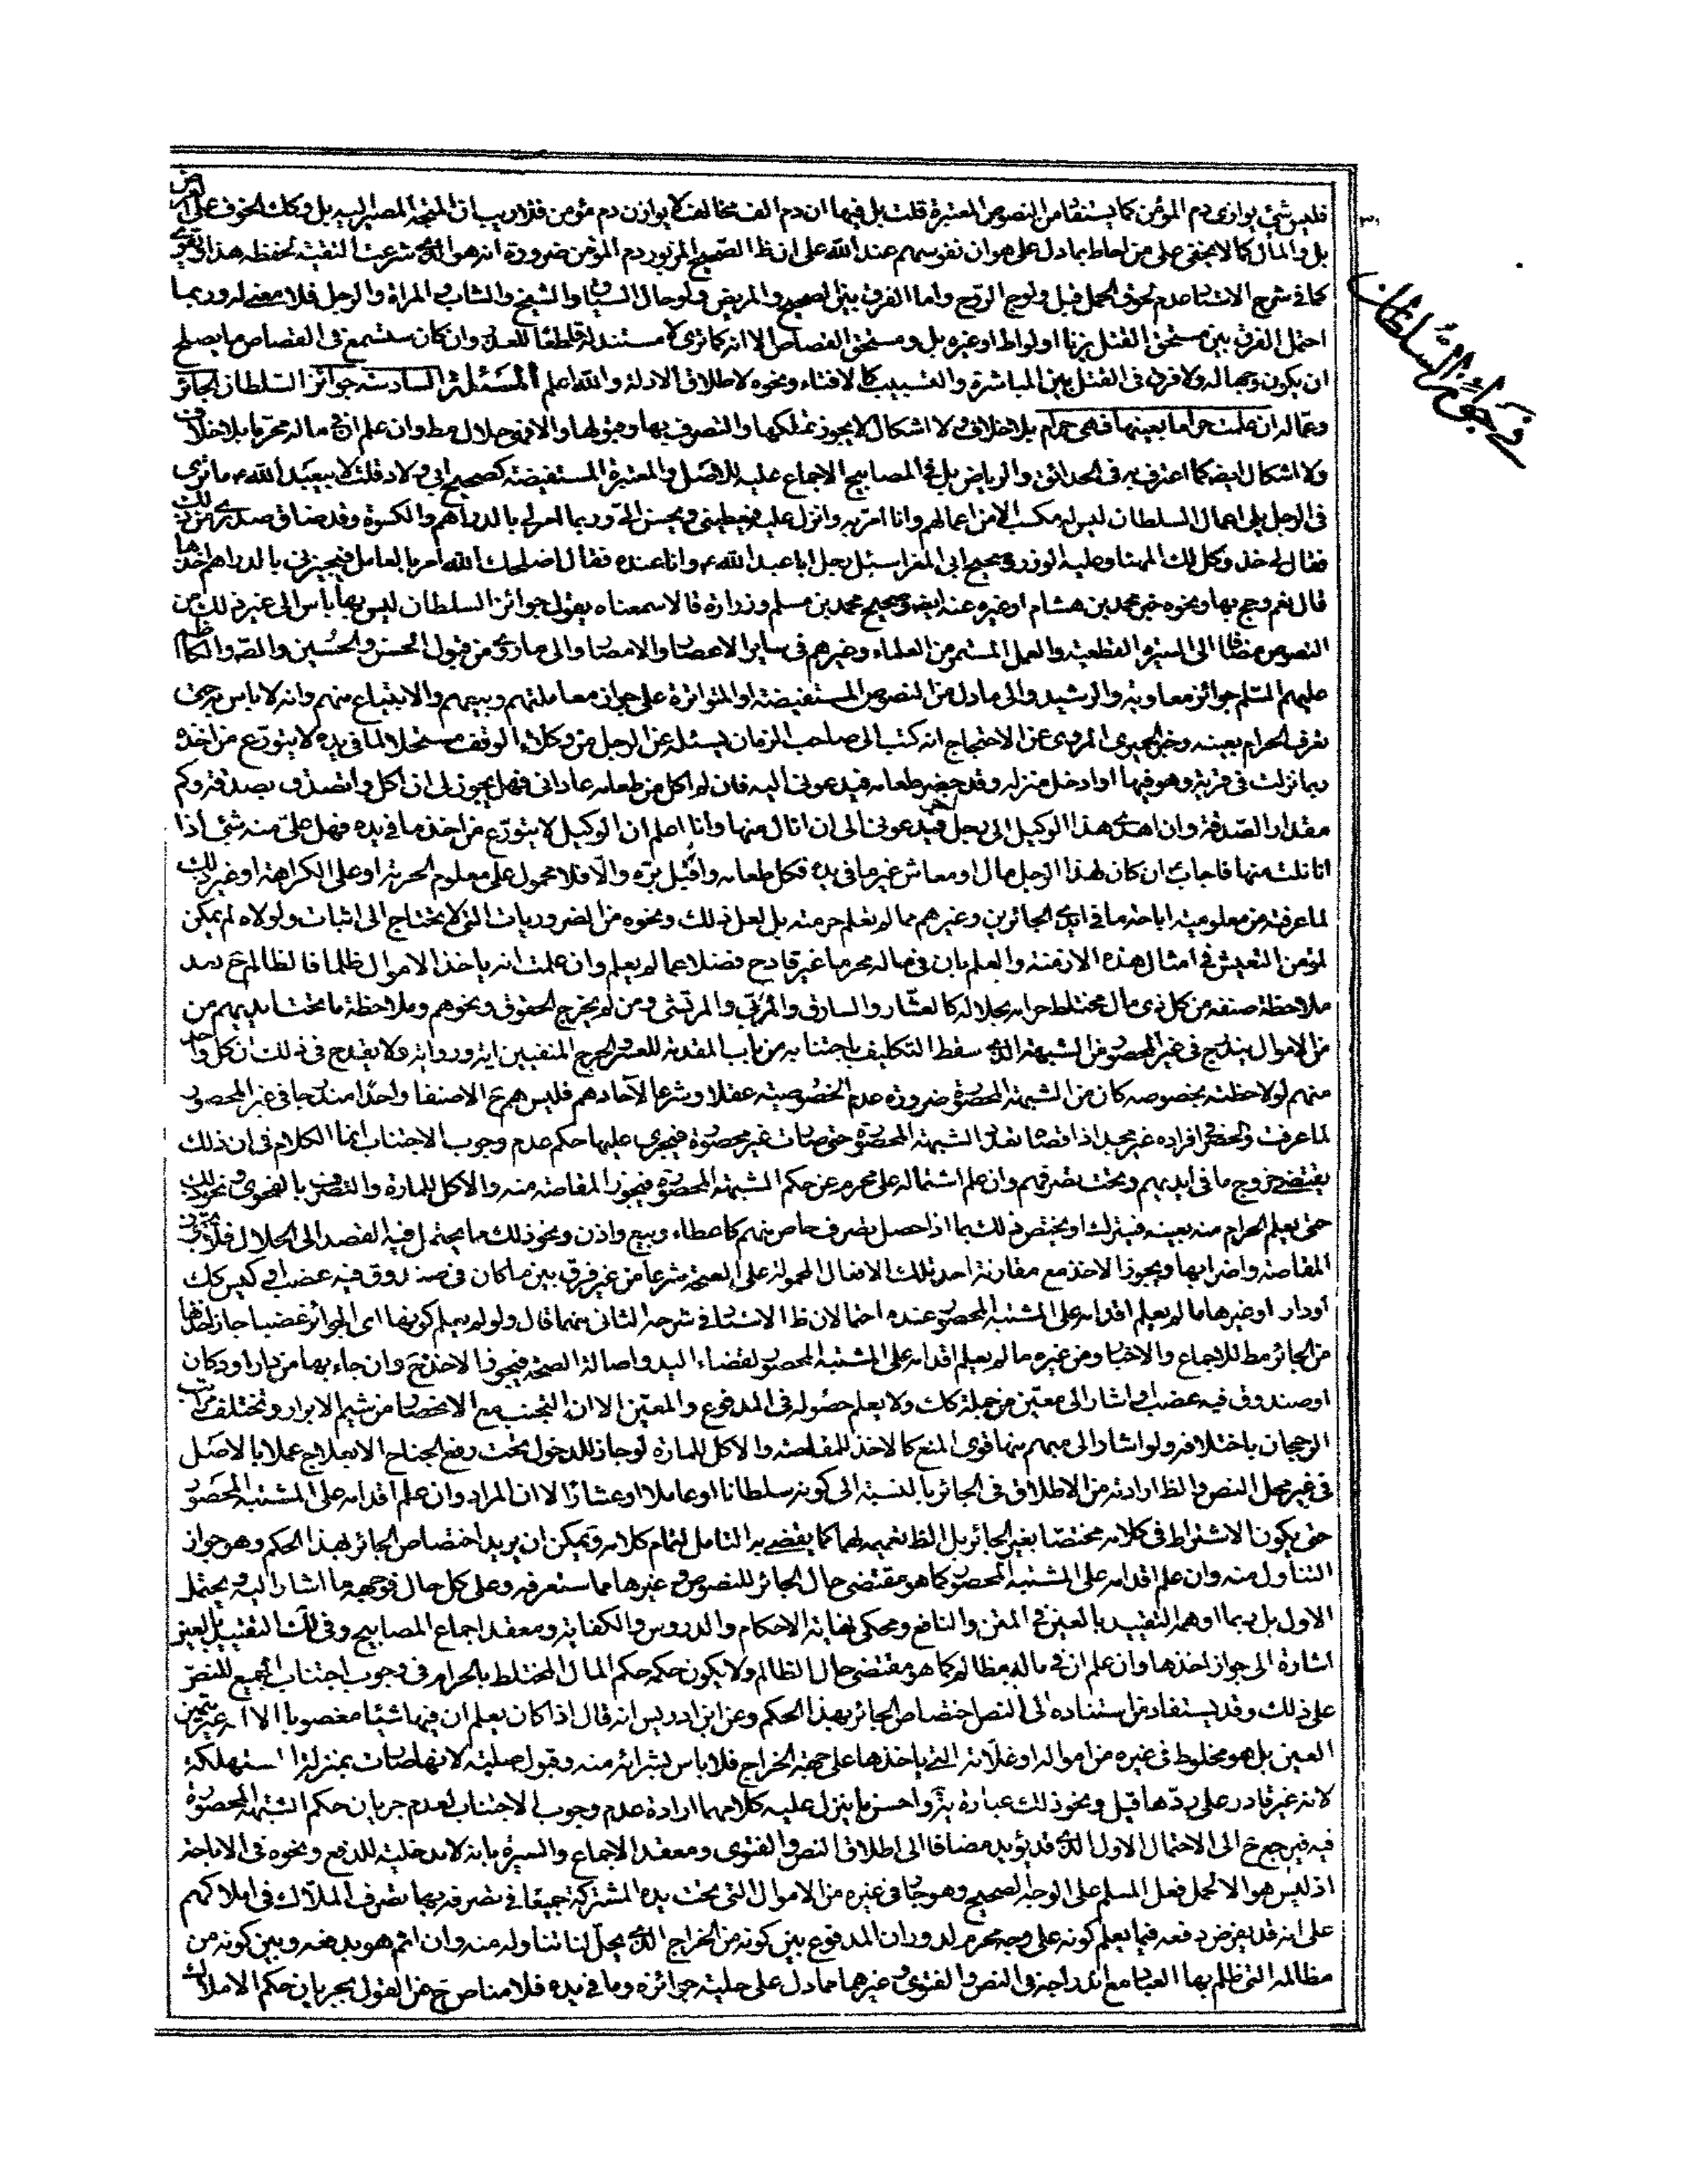 في جوائز السلطان
فليس شئ يوازى دم المؤمن كما يستفاد من النصوص المعتبرة قلت بل فيها ان دم الف مخالف لا يوازن دم مؤمن فلا ريب ان المتجه المصير اليه بل وكك الخوف على العرض
بل والمال كما لا يخفى على من احاط بما دل على هوان نفوسهم عند الله على ان ظ الصحيح المزبور دم المؤمن ضرورة انه هو الذى شرعت التقية لحفظه هذا وقوى
كما في شرح الاستاد عدم لحوق الحمل قبل ولوج الروح واما الفرق بين الصحيح والمريض ولو حال السياق والشيخ والشاب والمراة والرجل فلا معنى له وربما
احتمل الفرق بين مستحق القتل بزنا اولواط او غيره بل ومستحق القصاص الا انه كما ترى لا مستند له قاطعا للعذر وان كان ستسمع في القصاص ما يصلح
ان يكون وجها له ولا فرق في القتل بين المباشرة والتسبيب كالافتاء ونحوه لاطلاق الادلة والله اعلم المسئلة السادسة جوائز السلطان الجائر
وعماله ان علمت حراما بعينها فهى حرام بلا خلاف ولا اشكال لا يجوز تملكها والتصرف بها وقبولها والا فهو حلال مط وان علم ان في ماله محرما بلا خلاف
ولا اشكال ايضا كما اعترف به في الحدائق والرياض بل في المصابيح الاجماع عليه للاصل والمعتبرة المستفيضة كصحيح ابى ولاد قلت لابيعبد الله ع ما ترى
في الرجل يلى اعمال السلطان ليس له مكسب الا من اعمالهم وانا امر به وانزل عليه فيضيفنى ويحسن الى وربما امر لى بالدراهم والكسوة وقد ضاق صدرى من ذلك
فقال لى خذ وكل لك المهنا وعليه الوزر وصحيح ابى المغرا سئل رجل ابا عبد الله ع وانا عنده فقال اصلحك الله امر بالعامل فيجيزنى بالدراهم اخذها
قال نعم وحج بها ونحوه خبر محمد بن هشام او غيره عنه ايضا وصحيح محمد بن مسلم وزرارة قالا سمعناه يقول جوائز السلطان ليس بها باس الى غير ذلك من
النصوص مضافا الى السيرة القطعية والعمل المستمر من العلماء وغيرهم في ساير الاعصار والامصار والى ما روى من قبول الحسن والحسين والصادق والكاظم
عليهم السلم جوائز معاوية والرشيد والى ما دل من النصوص المستفيضة او المتواترة على جواز معاملتهم وبيعهم والابتياع منهم وانه لا باس به حتى
تعرف الحرام بعينه وخبر الحميرى المروى عن الاحتجاج انه كتب الى صاحب الزمان يسئله عن الرجل من وكلاء الوقف مستحلا لما في يده لا يتورع من اخذه
ربما نزلت في قرية وهو فيها او ادخل منزله وقد حضر طعامه فيدعونى اليه فان لم اكل من طعامه عادانى فهل يجوز لى ان اكل واتصدق بصدقة وكم
مقدار الصدقة وان اهدى هذا الوكيل الى رجل اخر فيدعونى الى ان انال منها وانا اعلم ان الوكيل لا يتورع من اخذ ما في يده فهل على منه شئ اذا
انا نلت منها فاجاب ان كان لهذا الرجل مال او معاش غير ما في يده فكل طعامه واقبل بره والا فلا محمول على معلوم الحرمة او على الكراهة او غير ذلك
لما عرفت من معلومية اباحة ما في ايدى الجائرين وغيرهم مما لم يعلم حرمته بل لعل ذلك ونحوه من الضروريات التى لا يحتاج الى اثبات ولولاه لم يمكن
لمؤمن التعيش في امثال هذه الازمنة والعلم بان في ماله محرما غير قادح فضلا عما لم يعلم وان علمت انه ياخذ الاموال ظلما فالظالم ح بعد
ملاحظة صنفه من كل ذى مال مختلط حرامه بحلاله كالعشار والسارق والمربى والمرتشى ومن لم يخرج الحقوق ونحوهم وملاحظة ما تحت ايديهم من
من الاموال يندرج في غير المحصور من الشبهة الذى سقط التكليف باجتنابه من باب المقدمة للعسر والحرج المنفيين اية ورواية ولا يقدح في ذلك ان كل واحد
منهم لو لاحظته بخصوصه كان من الشبهة المحصورة ضرورة عدم الخصوصية عقلا وشرعا لاحادهم فليس هم ح الا صنفا واحدا مندرجا في غير المحصور
لما عرفت وحصر افراده غير مجد اذا قصاه تعدد الشبهة المحصورة حتى صارت غير محصورة فيجرى عليها حكم عدم وجوب الاجتناب انما الكلام في ان ذلك
يقتضى خروج ما في ايديهم وتحت تصرفهم وان علم اشتماله على محرم عن حكم الشبهة المحصورة فيجوز المقاصة منه والاكل للمارة والتصرف بالفحوى ونحو ذلك
حتى يعلم الحرام منه بعينه فيترك او يختص ذلك بما اذا حصل تصرف خاص منهم كاعطاء وبيع واذن ونحو ذلك ما يحتمل فيه القصد الى الحلال فلا يجوز
المقاصة واضرابها ويجوز الاخذ مع مقارنة احد تلك الافعال المحمولة على الصحة شرعا من غير فرق بين ما كان في صندوق فيه غصب او كيس كك
او دار او غيرها ما لم يعلم اقدامه على المشتبه المحصور عنده احتمالان ظ الاستاد في شرحه الثانى منهما قال ولو لم يعلم كونها اى الجوائز غصبا جاز اخذها
من الجائر مط للاجماع والاخبار ومن غيره ما لم يعلم اقدامه على المشتبه المحصور لقضاء اليد واصالة الصحة فيجوز الاخذ ح وان جاء بها من دار او دكان
او صندوق فيه غصب او اشار الى معين من جملة كك ولا يعلم حصوله في المدفوع والمعين الا ان التجنب مع الانحصار من شيم الابرار وتختلف مراتب
الرجحان باختلافه ولو اشار الى مبهم منها قوى المنع كالاخذ للمقاصة والاكل للمارة لو جاز للدخول تحت رفع الجناح الا بعلاج عملا بالاصل
في غير محل النص والظ ارادته من الاطلاق في الجائر بالنسبة الى كونه سلطانا او عاملا او عشارا لا ان المراد وان علم اقدامه على المشتبه المحصور
حتى يكون الاشتراط في كلامه مختصا بغير الجائر بل الظ تعميمه لهما كما يقضى به التامل لتمام كلامه ويمكن ان يريد اختصاص الجائر بهذا الحكم وهو جواز
التناول منه وان علم اقدامه على المشتبه المحصور كما هو مقتضى حال الجائر للنصوص وغيرها مما ستعرفه وعلى كل حال فوجهه ما اشار اليه ويحتمل
الاول بل ربما اوهمه التقييد بالعين في المتن والنافع ومحكى نهاية الاحكام والدروس والكفاية ومعقد اجماع المصابيح وفي لك التقييد بالعين
اشارة الى جواز اخذها وان علم ان في ماله مظالم كما هو مقتضى حال الظالم ولا يكون حكمه حكم المال المختلط بالحرام في وجوب اجتناب الجميع للنص
على ذلك وقد يستفاد من استناده الى النص اختصاص الجائر بهذا الحكم وعن ابن ادريس انه قال اذا كان يعلم ان فيها شيئا مغصوبا الا انه غير متميز
العين بل هو مخلوط في غيره من امواله او غلاته التى ياخذها على جهة الخراج فلا باس بشرائه منه وقبول صلته لانها صارت بمنزلة المستهلكة
لانه غير قادر على ردها قيل ونحو ذلك عبارة ير واحسن ما ينزل عليه كلامهما ارادة عدم وجوب الاجتناب لعدم جريان حكم الشبهة المحصورة
فيه فيرجع ح الى الاحتمال الاول الذى قد يؤيد مضافا الى اطلاق النص والفتوى ومعقد الاجماع والسيرة بانه لا مدخلية للدفع ونحوه في الاباحة
اذ ليس هو الا لحمل فعل المسلم على الوجه الصحيح وهو جار في غيره من الاموال التى تحت يده المشتركة جميعا في تصرفه بها تصرف الملاك في املاكهم
على انه قد يفرض دفعه فيما يعلم كونه على وجه محرم لدوران المدفوع بين كونه من الخراج الذى يحل لنا تناوله منه وان اثم هو بدفعه وبين كونه من
مظالمه التى ظلم بها العباد مع اندراجه في النص والفتوى وغيرهما مما دل على حلية جوائزه وما في يده فلا مناص ح عن القول بجريان حكم الاملاك